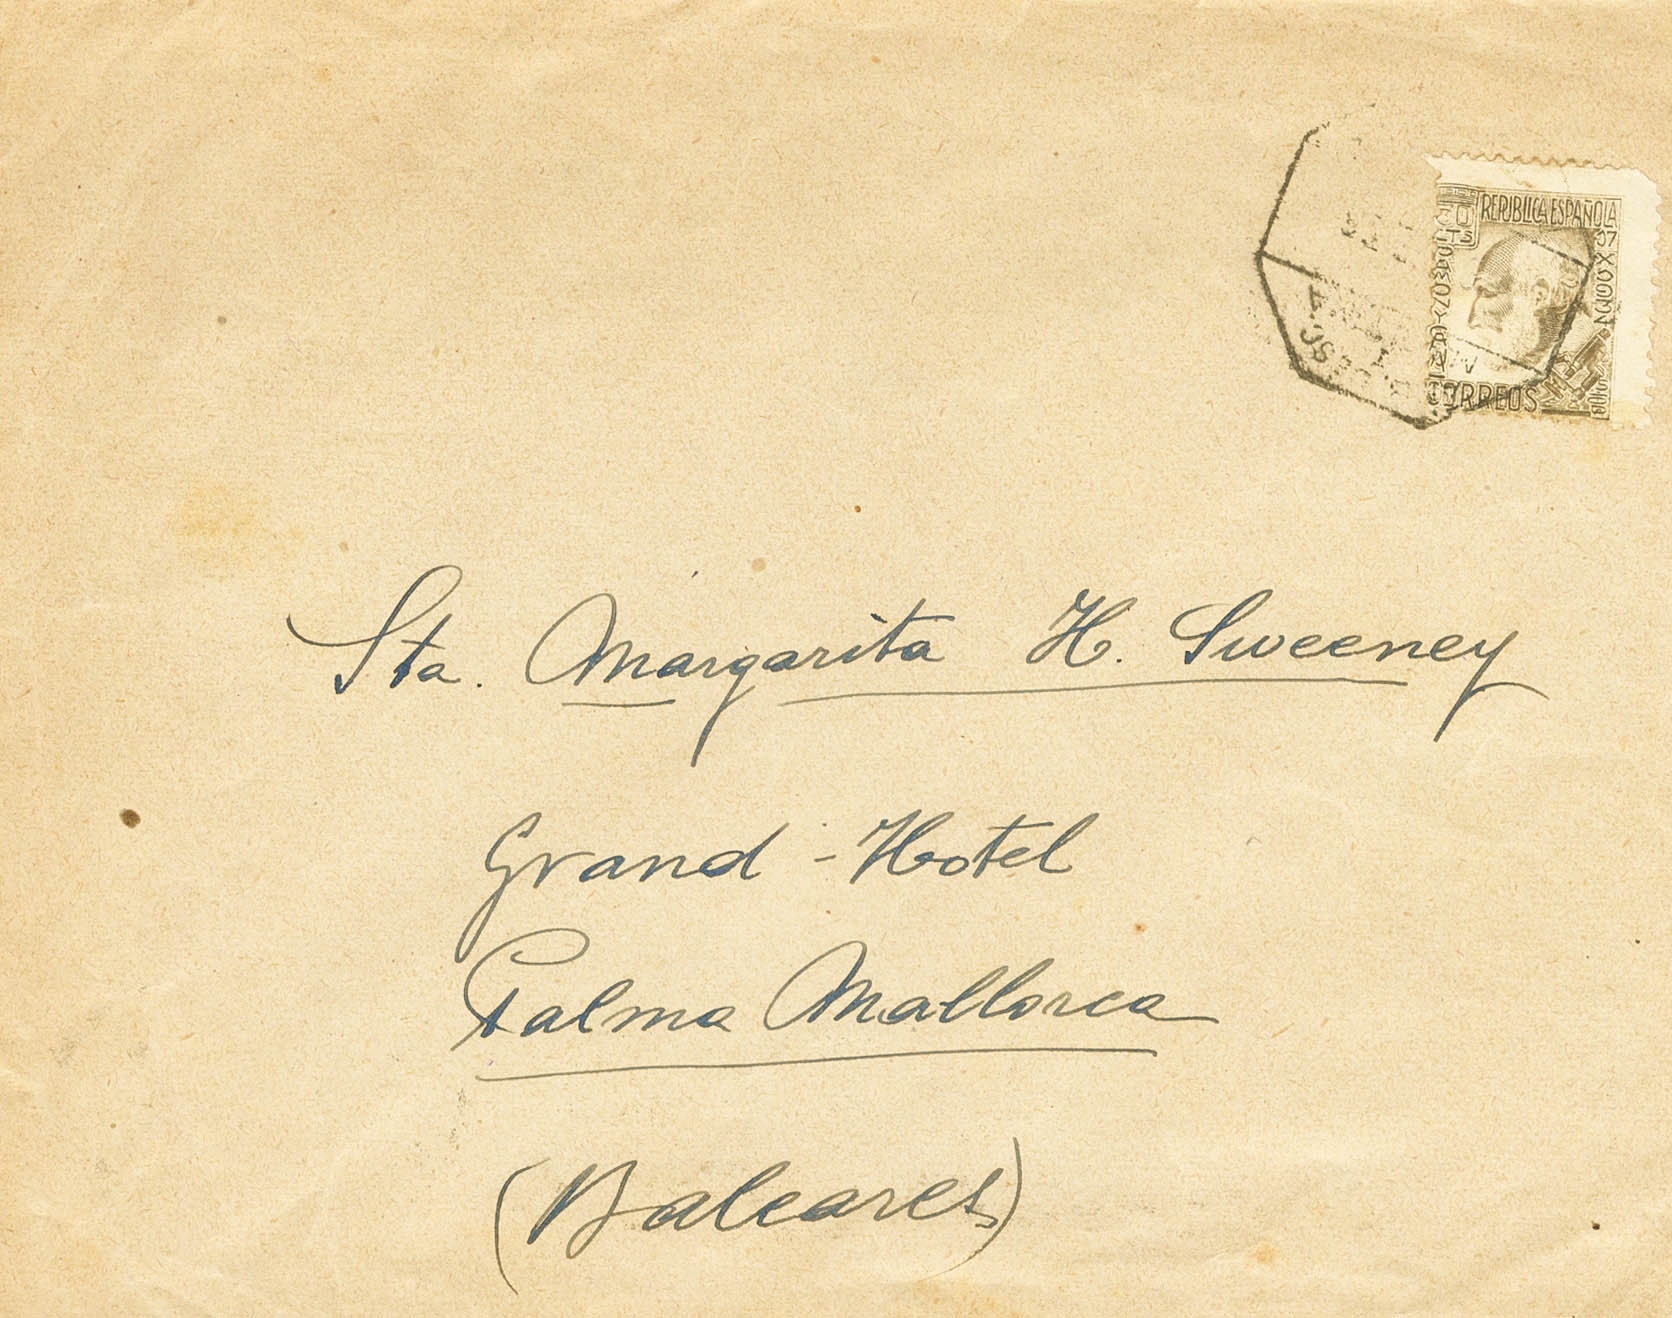 REPUBLICA ESPAÑOLA
30
CTS
CORREOS
Sta. Margarita H. Sweeney
Grand-Hotel
Palma Mallorca
(Baleares)